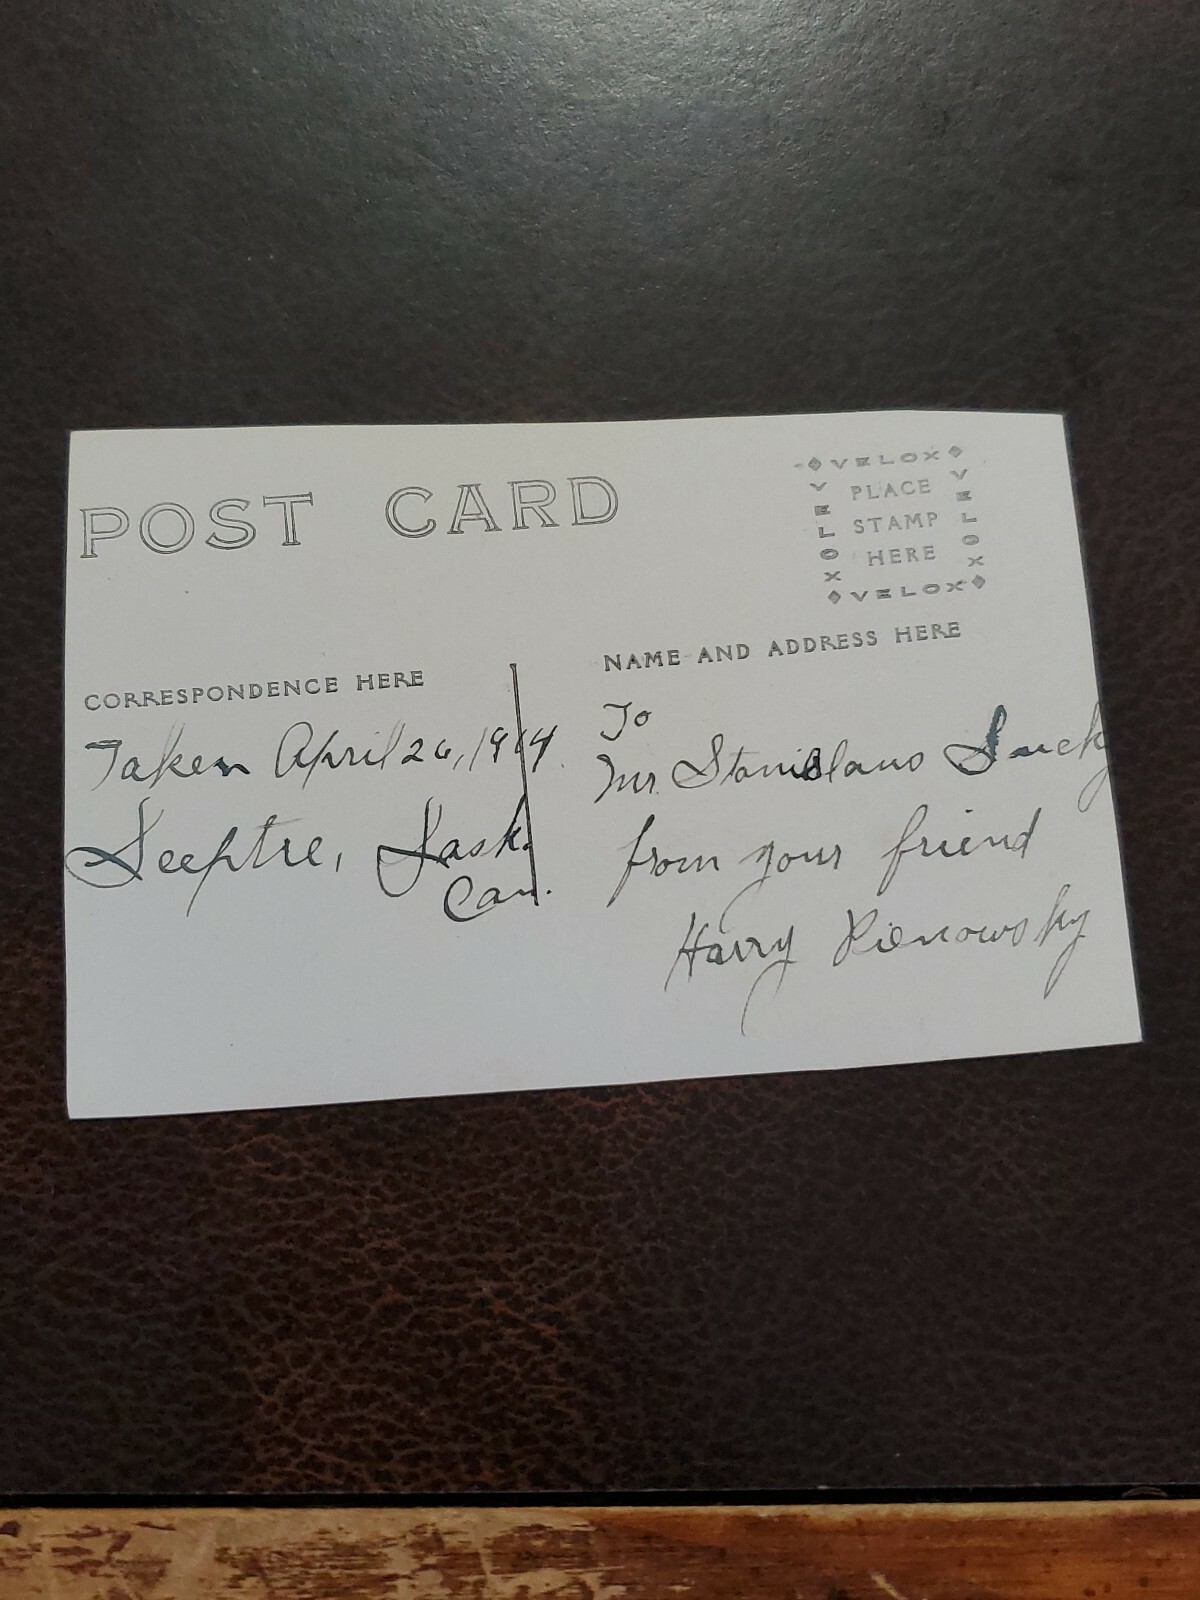 POST CARD
VELOX
VELOX
PLACE
STAMP
HERE
VELOX
VELOX
CORRESPONDENCE HERE
Taken April 26, 1914.
Sceptre, Sask.
Can.
NAME AND ADDRESS HERE
To
Mr. Stanislaus
from your friend
Harry